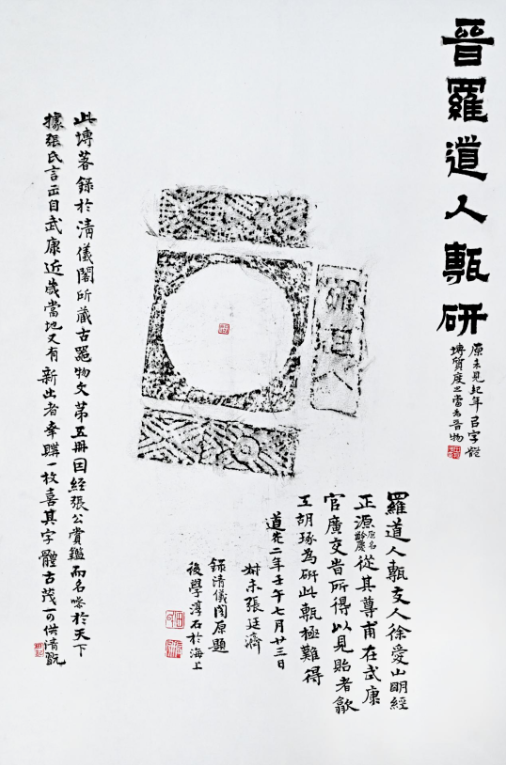 晉羅道人甎研
原未見紀年㠯字體
塼質度之當為晉物
羅道人
羅道人甎友人徐愛山明經
正源原名從其尊甫在武康
官廣文旹所得以見貽者歙
工胡琢為研此甎極難得
道光二年壬午七月廿三日
叔未張廷濟
錄清儀閣原題
後學淳石於海上
此塼著錄於清儀閣所藏古器物文第五冊因經張公賞鑑而名噪於天下
據張氏言出自武康近歲當地又有新出者幸購一枚喜其字體古茂可供清翫